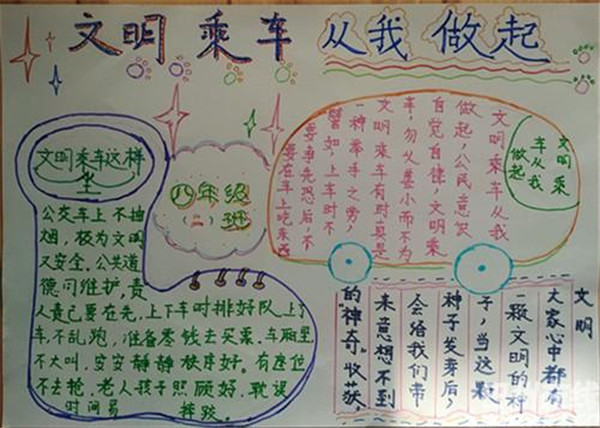 文明乘车 从我做起
文明乘车这样
坐
公交车上不抽
烟,极为文明
又安全。公共道
德问维护,责
人责己要在先。上下车时排好队上了
车,不乱跑,准备零钱去买票。车厢里
不大叫,安安静静秩序好。有座位
不去抢,老人孩子照顾好,耽误
时间易摔跤。
八年级
班
文明乘
车从我
做起
文明乘车从我
做起,公民意识
自觉自律,文明乘
车,勿以善小而不为
文明乘车有时真是
一种举手之劳,
譬如,上车时不
要争先恐后,不
要在车上吃东西
文明
大家心中都有
一颗文明的种
子,当这颗
种子发芽后,
会给我们带
来意想不到
的"神奇"收获。